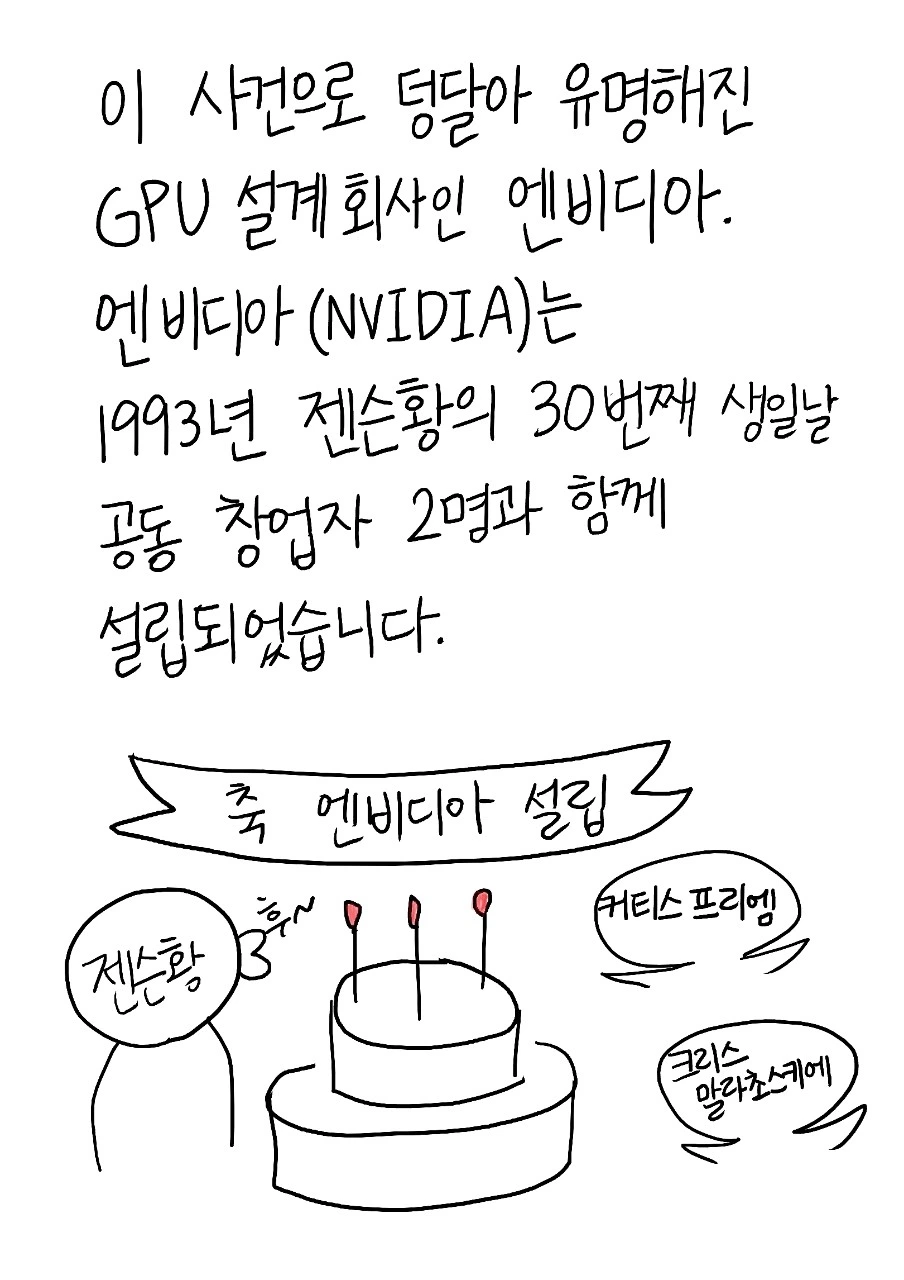 이 사건으로 덩달아 유명해진
GPU 설계 회사인 엔비디아.
엔비디아(NVIDIA)는
1993년 젠슨황의 30번째 생일날
공동 창업자 2명과 함께
설립되었습니다.
축 엔비디아 설립
후~
젠슨황
커티스 프리엠
크리스
말라초스키에